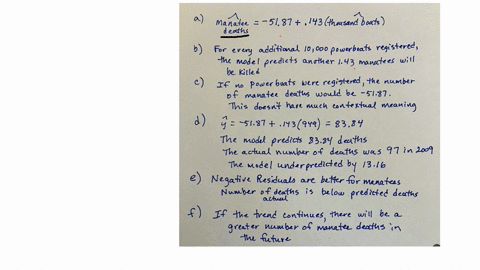 a) manatee deaths^ = -51.87 + .143 (thousand boats)
b) For every additional 10,000 powerboats registered,
the model predicts another 1.43 manatees will
be killed
c) If no powerboats were registered, the number
of manatee deaths would be -51.87.
This doesn't have much contextual meaning
d) ŷ = -51.87 + .143(949) = 83.84
The model predicts 83.84 deaths
The actual number of deaths was 97 in 2009
The model underpredicted by 13.16
e) Negative Residuals are better for manatees
Number of deaths is below predicted deaths
actual
f) If the trend continues, there will be a
greater number of manatee deaths in
the future